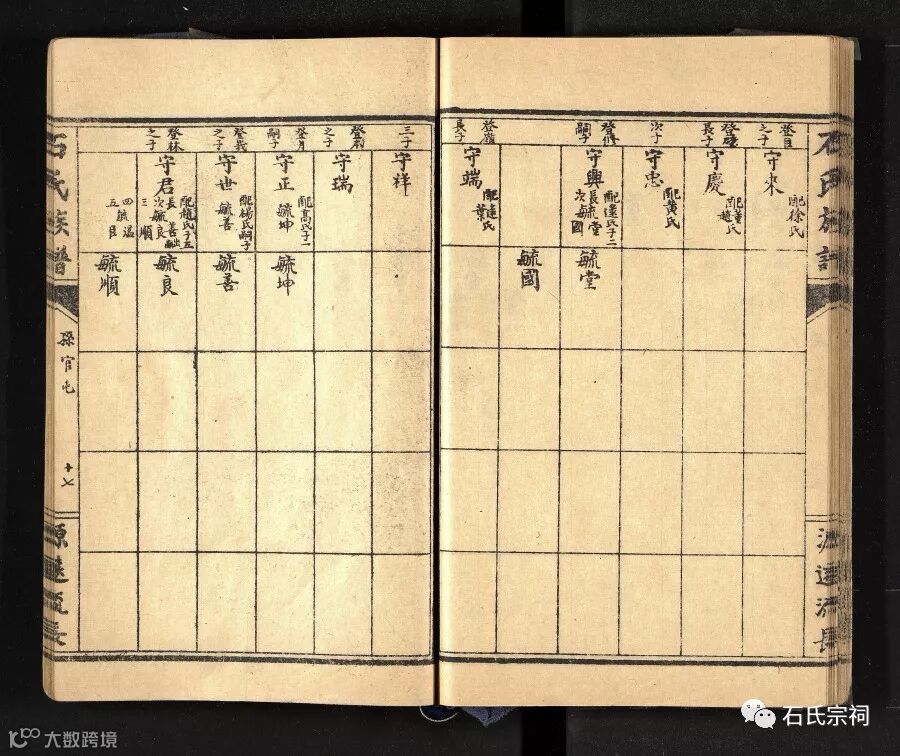 石氏族譜
源遠流長
之子
守來
配徐氏
長子
守慶
配董氏
趙
次子
守忠
配黄氏
嗣子
守興
配逢氏子二
長毓堂
次毓國
毓堂
毓國
長子
守端
配逄氏
葉
三子
守祥
之子
守瑞
嗣子
守正
配高氏子一
毓坤
毓坤
登義
之子
守世
配楊氏嗣子
毓善
毓善
登林
之子
守君
配趙氏子五
長善出嗣
次毓良
三順
四毓温
五
毓良
毓順
石氏族譜
孫官屯
十七
源遠流長
石氏宗祠
大数跨境